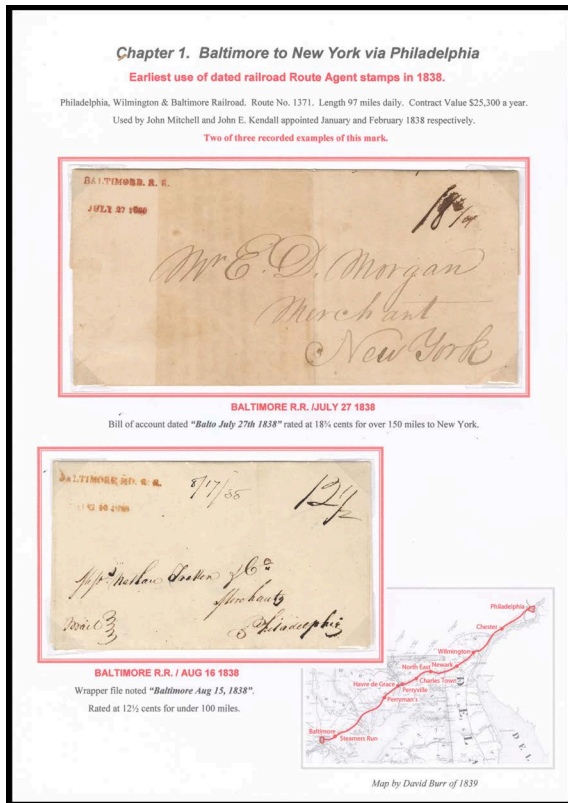 Chapter 1. Baltimore to New York via Philadelphia
Earliest use of dated railroad Route Agent stamps in 1838.
Philadelphia, Wilmington & Baltimore Railroad. Route No. 1371. Length 97 miles daily. Contract Value $25,300 a year.
Used by John Mitchell and John E. Kendall appointed January and February 1838 respectively.
Two of three recorded examples of this mark.
BALTIMORE. R. R.
JULY 27
18 3/4
Mr E. D. Morgan
Merchant
New York
BALTIMORE R.R. /JULY 27 1838
Bill of account dated "Balto July 27th 1838" rated at 18¾ cents for over 150 miles to New York.
BALTIMORE MD. R. R.
8/17/38
12 1/2
Nathan & Co
Merchants
Philadelphia
BALTIMORE R.R. / AUG 16 1838
Wrapper file noted "Baltimore Aug 15, 1838".
Rated at 12½ cents for under 100 miles.
Philadelphia
Chester
Wilmington
Newark
North East
Charles Town
Havre de Grace
Perryville
Perryman's
Baltimore
Steamers Run
D E L
D E L
Map by David Burr of 1839